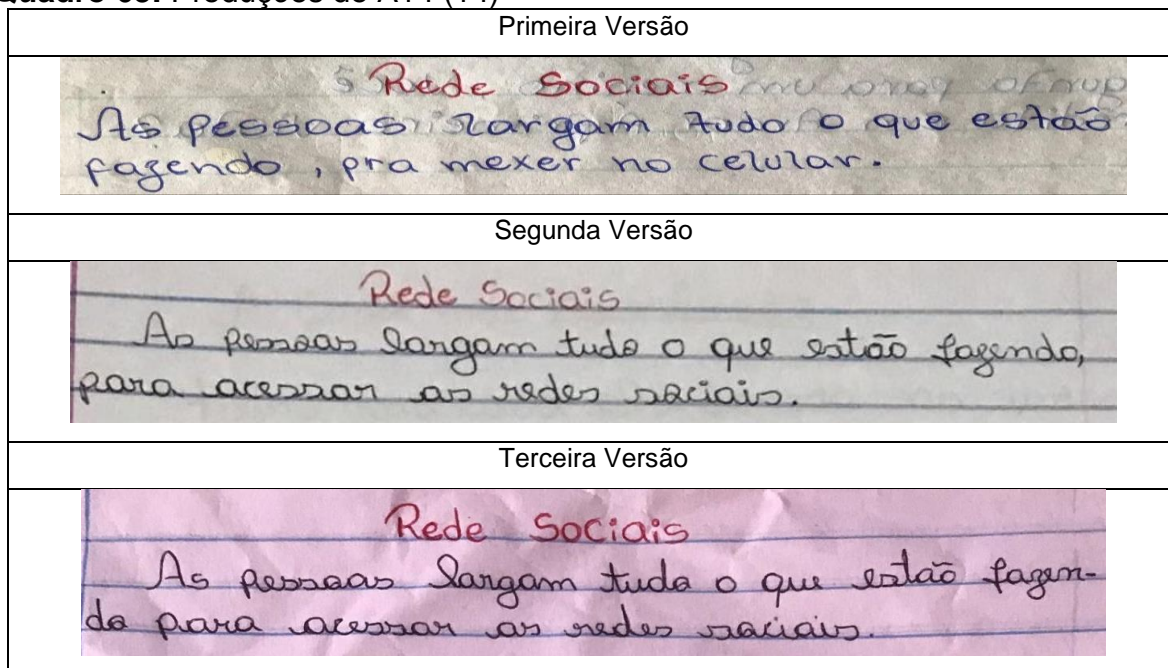 Primeira Versão
Rede Sociais
As pessoas largam tudo o que estão
fazendo, pra mexer no celular.
Segunda Versão
Rede Sociais
As pessoas largam tudo o que estão fazendo,
para acessar as redes sociais.
Terceira Versão
Rede Sociais
As pessoas largam tudo o que estão fazen-
do para acessar as redes sociais.